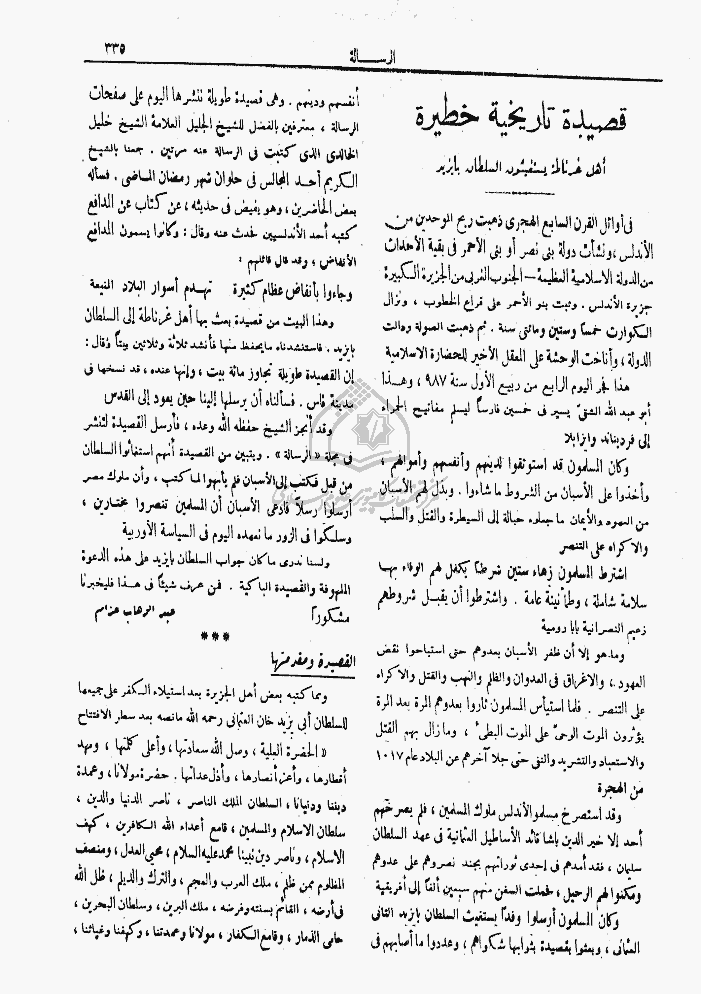 ٣٣٥
الرسالة
قصيدة تاريخية خطيرة
أهل غرناطة يستغيثون السلطان بايزيد
فى أوائل القرن السابع الهجرى ذهبت ريح الموحدين من
الأندلس ، ونشأت دولة بنى نصر أو بنى الأحمر فى بقية الأحداث
من الدولة الاسلامية العظيمة – الجنوب الغربى من الجزيرة الكبيرة
جزيرة الأندلس . وثبت بنو الأحمر على قراع الخطوب ، ونزال
الكوارث خمساً وستين ومائتى سنة . ثم ذهبت الصولة ودالت
الدولة ، وأناخت الوحشة على المعقل الأخير للحضارة الاسلامية
هذا فجر اليوم الرابع من ربيع الأول سنة ٩٨٧ ، وهذا
أبو عبد الله الشقىّ يسير فى خمسين فارساً ليسلم مفاتيح الحمراء
إلى فرديناند وايزابلا
وكان المسلمون قد استوثقوا لدينهم وأنفسهم وأموالهم ،
وأخذوا على الأسبان من الشروط ما شاءوا . وبذل لهم الأسبان
من العهود والأيمان ما جعلوه حبالة إلى السيطرة والقتل والسلب
والاكراه على التنصر
اشترط المسلمون زهاء ستين شرطاً يكفل لهم الوفاء بها
سلامة شاملة ، وطمأنينة عامة . واشترطوا أن يقبل شروطهم
زعيم النصرانية بابا رومية
وما هو إلا أن ظفر الأسبان بعدوهم حتى استباحوا نقض
العهود ، والاغراق فى العدوان والظلم والنهب والقتل والاكراه
على التنصر . فلما استيأس المسلمون ثاروا بعدوهم المرة بعد المرة
يؤثرون الموت الوحىّ على الموت البطىء ، وما زال بهم القتل
والاستعباد والتشريد والنفى حتى جلا آخرهم عن البلاد عام ١٠١٧
من الهجرة
وقد استصرخ مسلمو الأندلس ملوك المسلمين ، فلم يصرخهم
أحد إلا خير الدين باشا قائد الأساطيل العثمانية فى عهد السلطان
سليمان ، فقد أمدهم فى إحدى ثوراتهم بجند نصروهم على عدوهم
ومكنوا لهم الرحيل ، فحملت السفن منهم سبعين ألفاً إلى أفريقية
وكان المسلمون أرسلوا وفداً يستغيث السلطان بايزيد الثانى
العثمانى ، وبعثوا بقصيدة بثوا بها شكواهم ، وعددوا ما أصابهم فى
أنفسهم ودينهم . وهى قصيدة طويلة ننشرها اليوم على صفحات
الرسالة ، معترفين بالفضل للشيخ الجليل العلامة الشيخ خليل
الخالدى الذى كتبت فى الرسالة عنه مرتين . جمعنا بالشيخ
الكريم أحد المجالس فى حلوان شهر رمضان الماضى . فسأله
بعض الحاضرين ، وهو يفيض فى حديثه ، عن كتاب عن المدافع
كتبه أحد الأندلسيين لحدث عنه وقال : وكانوا يسمون المدافع
الأنفاض ؛ وقد قال قائلهم :
وجاءوا بأنفاض عظام كثيرة تهدم أسوار البلاد المنيعة
وهذا البيت من قصيدة بعث بها أهل غرناطة إلى السلطان
بايزيد . فاستنشدناه ما يحفظ منها فأنشد ثلاثة وثلاثين بيتاً وقال :
إن القصيدة طويلة تجاوز مائة بيت ، وإنها عنده ، قد نسخها فى
مدينة فاس . فسألناه أن يرسلها إلينا حين يعود إلى القدس
وقد أنجز الشيخ حفظه الله وعده ، فأرسل القصيدة لتنشر
فى مجلة «الرسالة» . ويتبين من القصيدة أنهم استغاثوا السلطان
من قبل فكتب إلى الأسبان فلم يأبهوا لما كتب ، وأن ملوك مصر
أرسلوا رسلاً فادعى الأسبان أن المسلمين تنصروا مختارين ،
وسلكوا فى الزور ما نعهده اليوم فى السياسة الأوربية
ولسنا ندرى ما كان جواب السلطان بايزيد على هذه الدعوة
الملهوفة والقصيدة الباكية . فمن عرف شيئاً فى هذا فليخبرنا
مشكوراً عبد الوهاب عزام
***
القصيدة ومقدمتها
ومما كتبه بعض أهل الجزيرة بعد استيلاء الكفر على جميعها
للسلطان أبى يزيد خان العثمانى رحمه الله مانصه بعد سطر الافتتاح
« الحضرة العلية ، وصل الله سعادتها ، وأعلى كلمتها ، ومهد
أقطارها ، وأعز أنصارها ، وأذل عداتها . حضرة مولانا ، وعمدة
ديننا ودنيانا ، السلطان الملك الناصر ، ناصر الدنيا والدين ،
سلطان الاسلام والمسلمين ، قامع أعداء الله الكافرين ، كهف
الاسلام ، وناصر دين نبينا محمد عليه السلام ، محيى العدل ، ومنصف
المظلوم ممن ظلم ، ملك العرب والعجم ، والترك والديلم ، ظل الله
فى أرضه ، القائم بسنته وفرضه ، ملك البرين ، وسلطان البحرين ،
حامى الذمار ، وقامع الكفار ، مولانا وعمدتنا ، وكهفنا وغياثنا ،